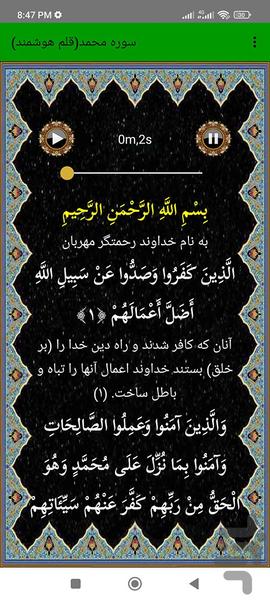 8:47 PM
سوره محمد(قلم هوشمند)
0m,2s
بِسْمِ اللَّهِ الرَّحْمَنِ الرَّحِيمِ
به نام خداوند رحمتگر مهربان
الَّذِينَ كَفَرُوا وَصَدُّوا عَنْ سَبِيلِ اللَّهِ
أَضَلَّ أَعْمَالَهُمْ ﴿۱﴾
آنان که کافر شدند و راه دین خدا را (بر
خلق) بستند خداوند اعمال آنها را تباه و
باطل ساخت. (۱)
وَالَّذِينَ آمَنُوا وَعَمِلُوا الصَّالِحَاتِ
وَآمَنُوا بِمَا نُزِّلَ عَلَى مُحَمَّدٍ وَهُوَ
الْحَقُّ مِنْ رَبِّهِمْ كَفَّرَ عَنْهُمْ سَيِّئَاتِهِمْ